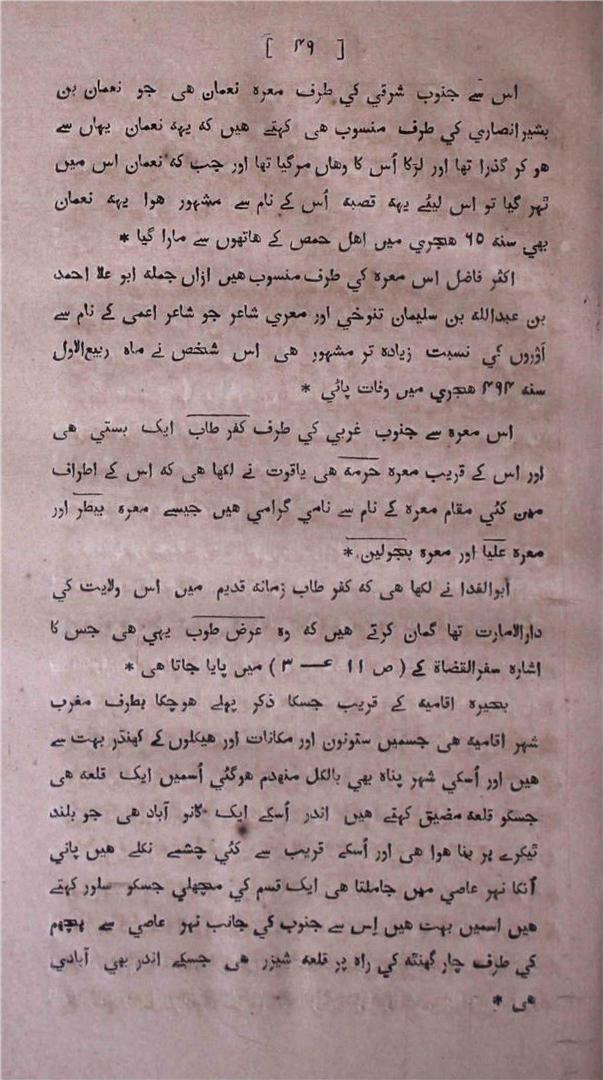 [ ۴۹ ]
اس سے جنوب شرقي کي طرف معره نعمان هی جو نعمان بن
بشیر انصاري کي طرف منسوب هی کہتے هیں که یہه نعمان یہاں سے
هو کر گذرا تها اور لڑکا اُس کا وهاں مرگیا تها اور جب که نعمان اس میں
ٹہر گیا تو اس لیئے یہه قصبه اُس کے نام سے مشہور هوا یہه نعمان
بهي سنه ۶۵ هجري میں اهل حمص کے هاتهوں سے مارا گیا *
اکثر فاضل اس معره کي طرف منسوب هیں ازاں جمله ابو علا احمد
بن عبدالله بن سلیمان تنوخي اور معري شاعر جو شاعر اعمی کے نام سے
اَوْروں کي نسبت زیاده تر مشہور هی اس شخص نے ماه ربیع الاول
سنه ۴۹۴ هجري میں وفات پائي *
اس معره سے جنوب غربي کي طرف کفر طاب ایک بستي هی
اور اس کے قریب معره حرمه هی یاقوت نے لکها هی که اس کے اطراف
میں کئي مقام معره کے نام سے نامي گرامي هیں جیسے معره بیطر اور
معره علیا اور معره بجولین *
ابوالفدا نے لکها هی که کفر طاب زمانه قدیم میں اس ولایت کي
دارالامارت تها گمان کرتے هیں که وه عرض طوب یہي هی جس کا
اشاره سفرالقضاة کے ( ص ۱۱ ع — ۳ ) میں پایا جاتا هی *
بحیره اقامیه کے قریب جسکا ذکر پہلے هوچکا بطرف مغرب
شہر اقامیه هی جسمیں ستونوں اور مکانات اور هیکلوں کے کهنڈر بہت سے
هیں اور اُسکي شہر پناه بهي بالکل منهدم هوگئي اُسمیں ایک قلعه هی
جسکو قلعه مضیق کہتے هیں اندر اُسکے ایک گانو آباد هی جو بلند
ٹیکرے پر بنا هوا هی اور اُسکے قریب سے کئي چشمے نکلے هیں پاني
اُنکا نہر عاصي میں جاملتا هی ایک قسم کي مچهلي جسکو سلور کہتے
هیں اسمیں بہت هیں اِس سے جنوب کي جانب نہر عاصي سے پچهم
کي طرف چار گهنٹه کي راه پر قلعه شیزر هی جسکے اندر بهي آبادي
هی *